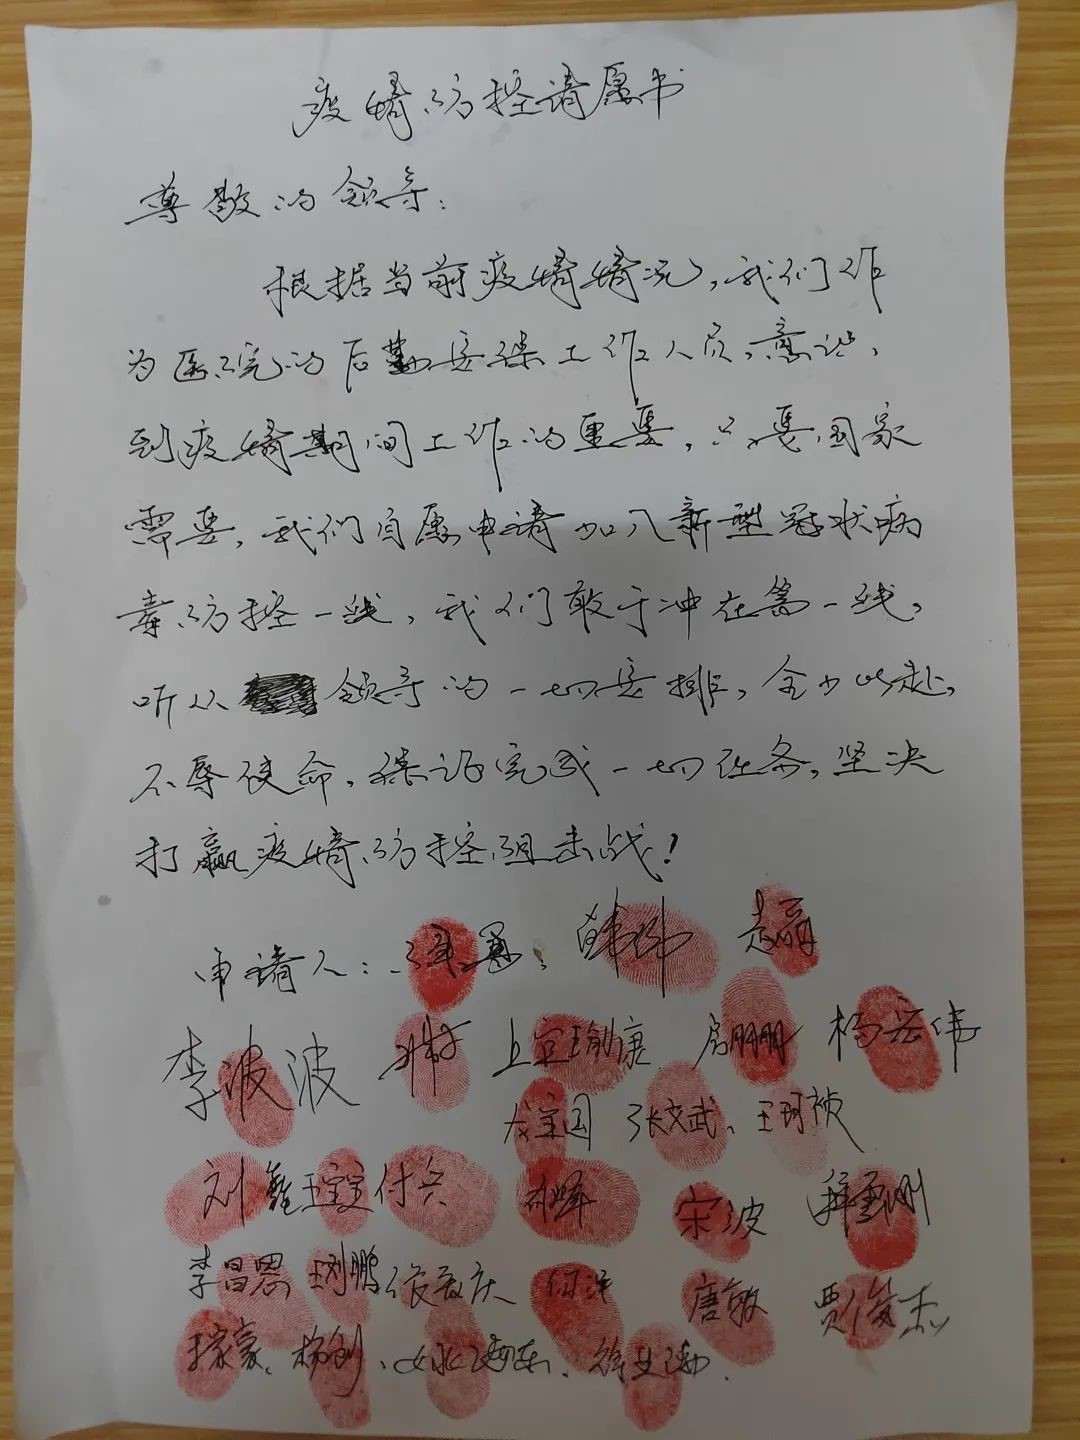 疫情防控请愿书
尊敬的领导：
根据当前疫情情况，我们作
为医院的后勤安保工作人员，意识
到疫情期间工作的重要，只要国家
需要，我们自愿申请加入新型冠状病
毒防控一线，我们敢于冲在第一线，
听从领导的一切安排，全力以赴，
不辱使命，保证完成一切任务，坚决
打赢疫情防控阻击战！
申请人：
李波波 上官瑜康 房鹏鹏 杨宏伟
张文武、王珂祯
刘鑫 王宝宝 付兵 宋波
李昌恩 王刘鹏 侯育庆 何洋 唐敏 贾俊杰
王家豪、杨剑、